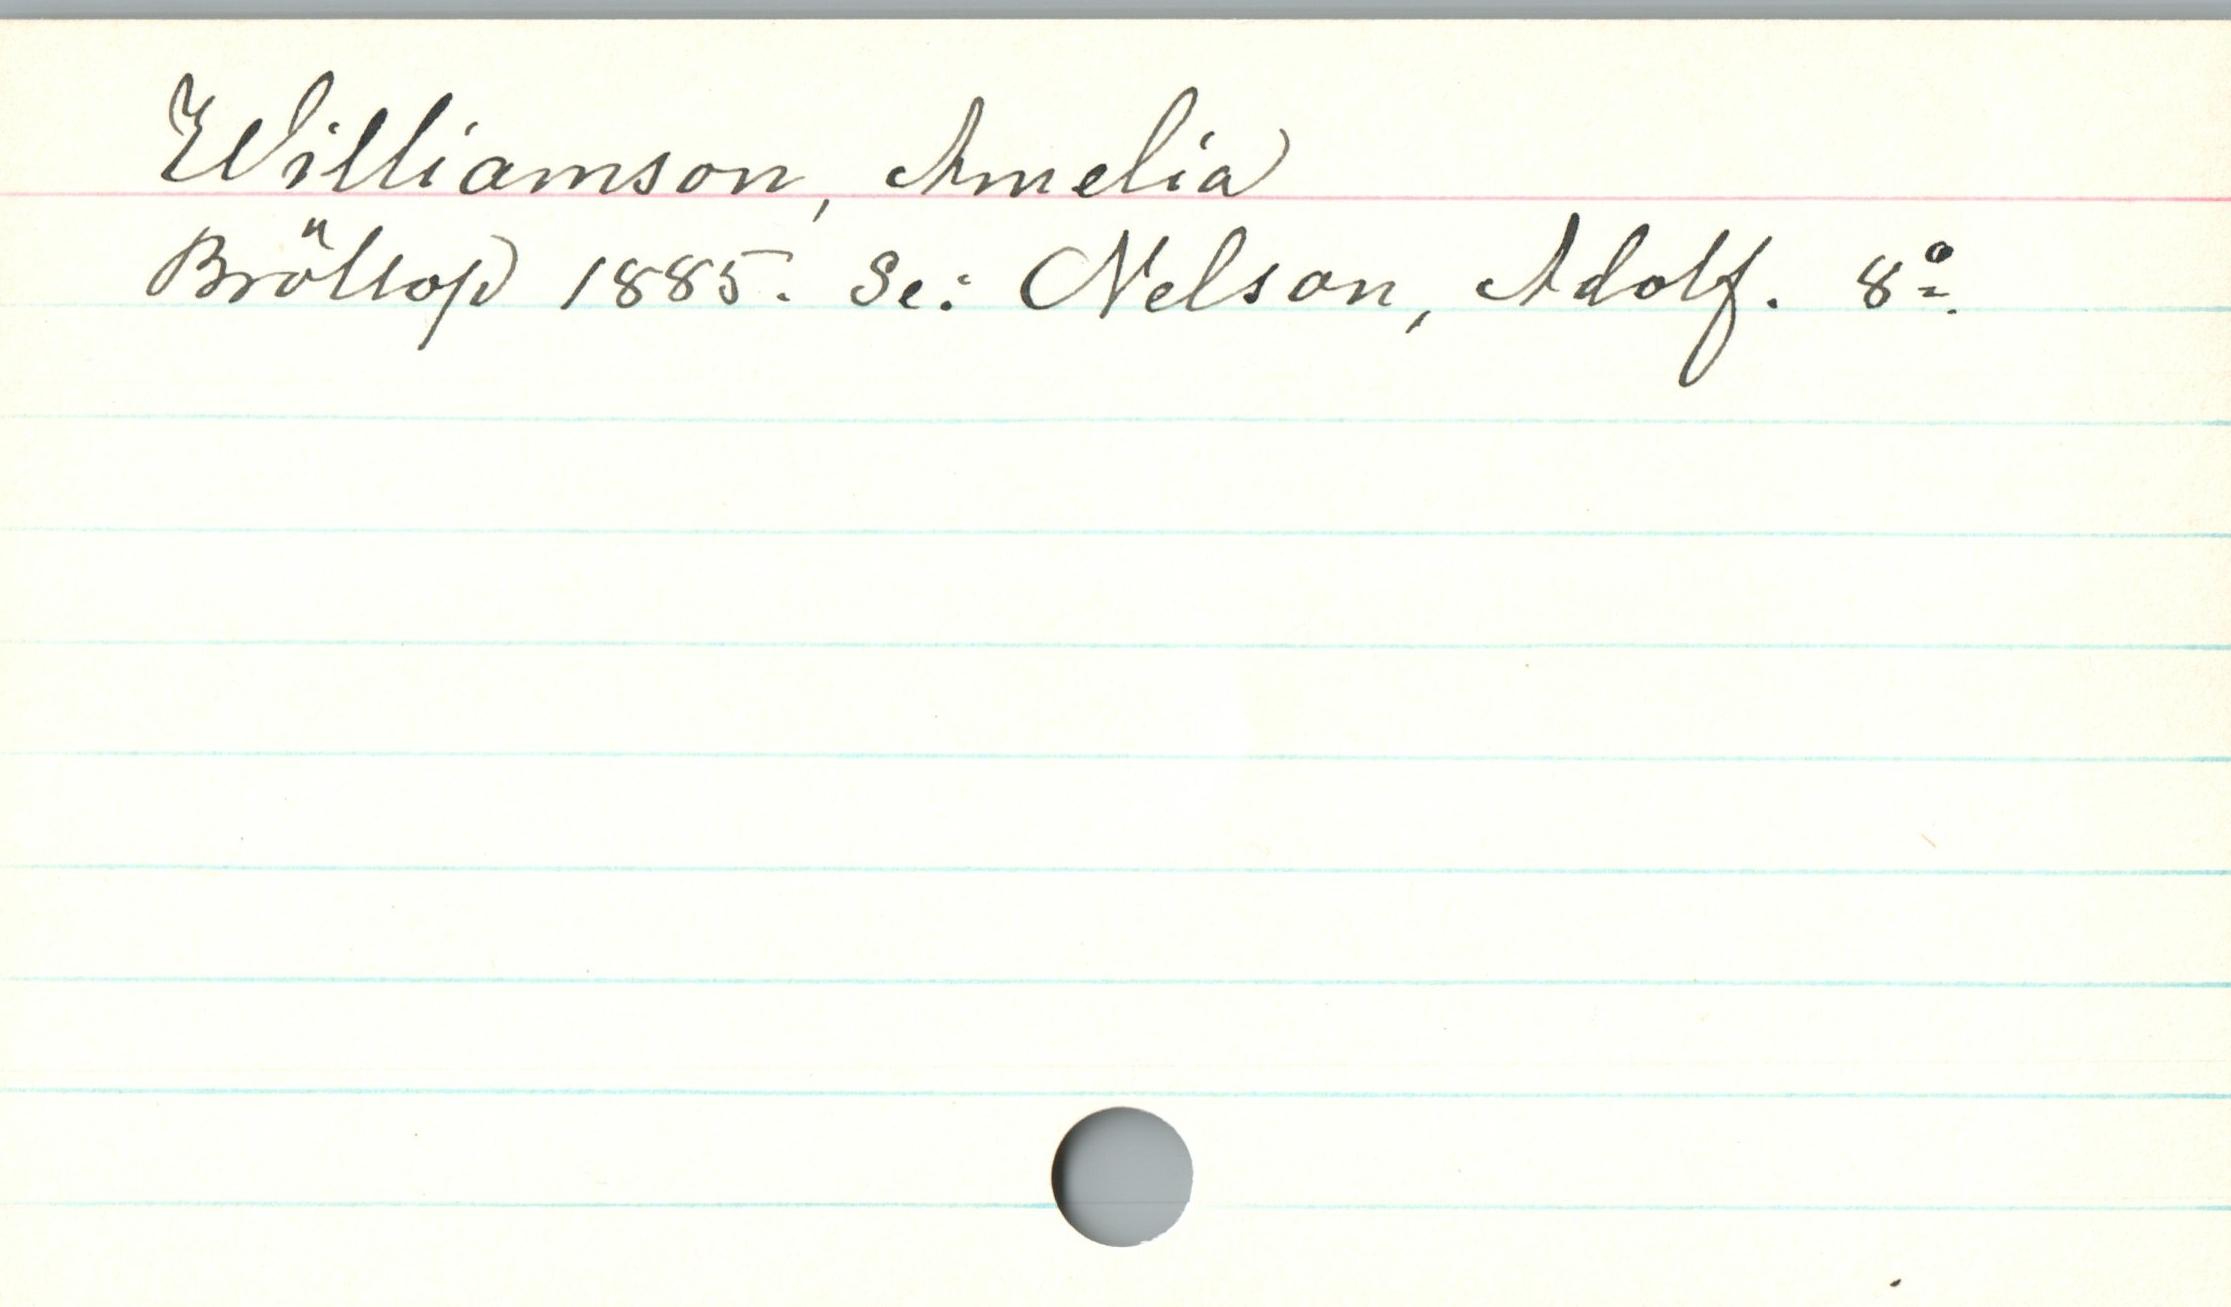 Williamson, Amelia
Bröllop 1885. Se: Nelson, Adolf. 8º.